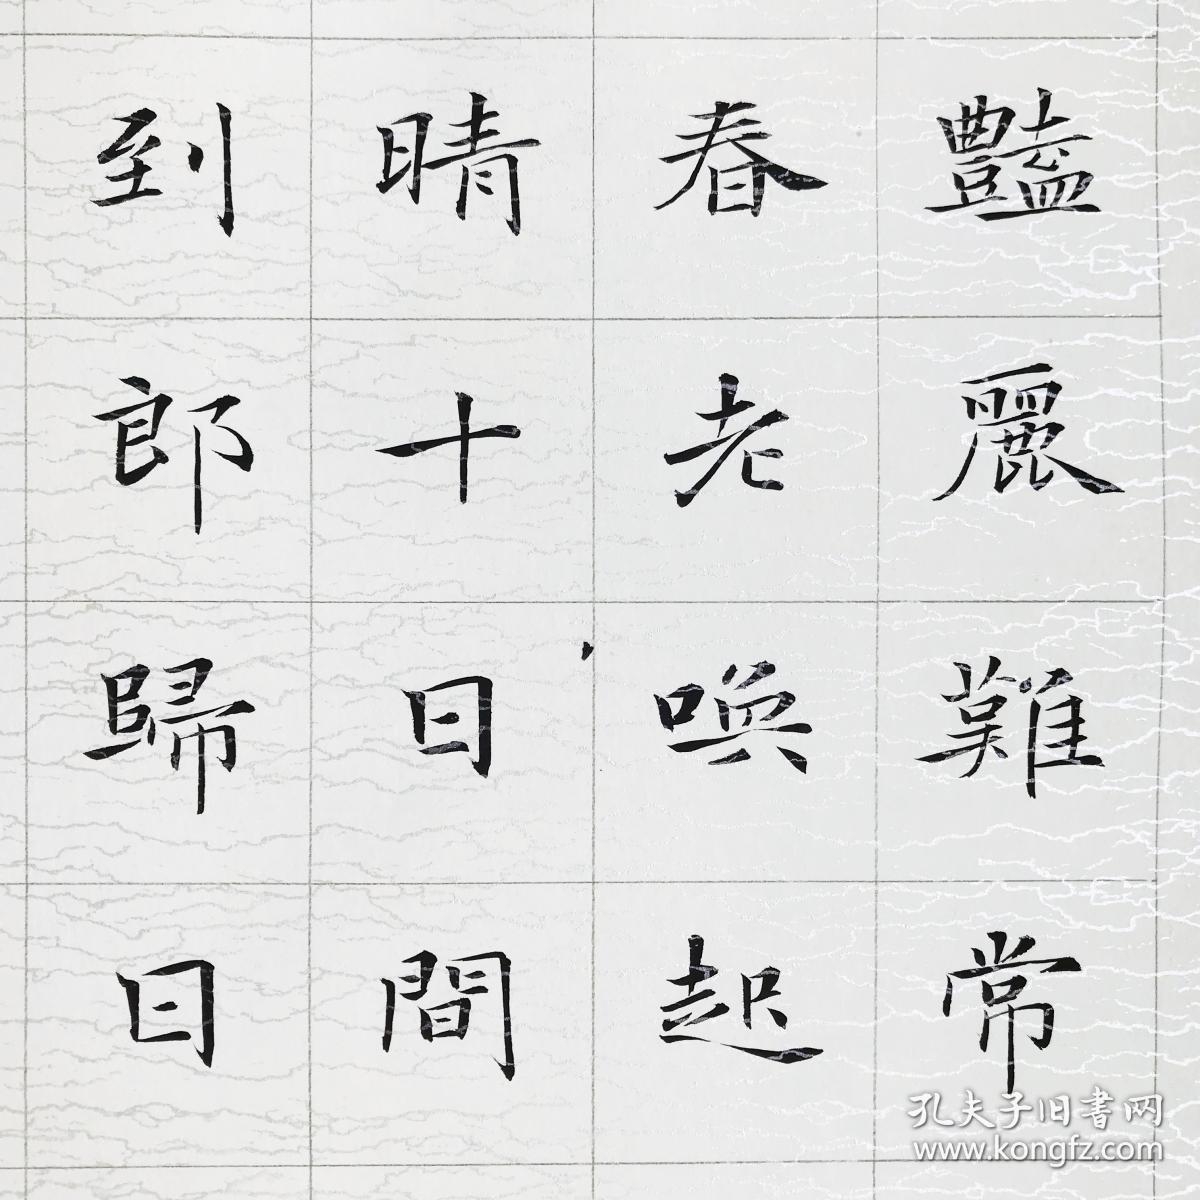 豔麗難常
春老喚起
晴十日間
到郎歸日
孔夫子旧書网
www.kongfz.com